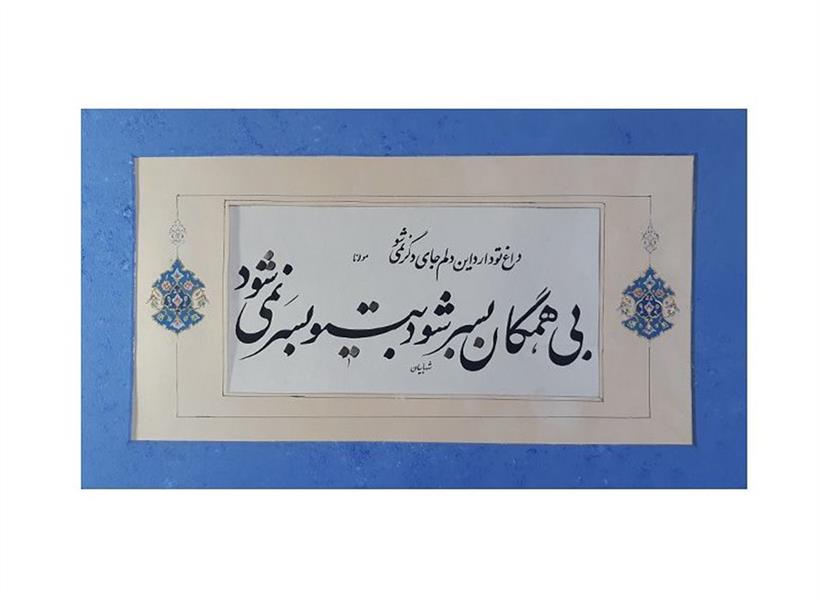 داغ تو دارد این دلم جای دگر نمی شود
مولانا
بی همگان بسر شود بیتو بسر نمی شود